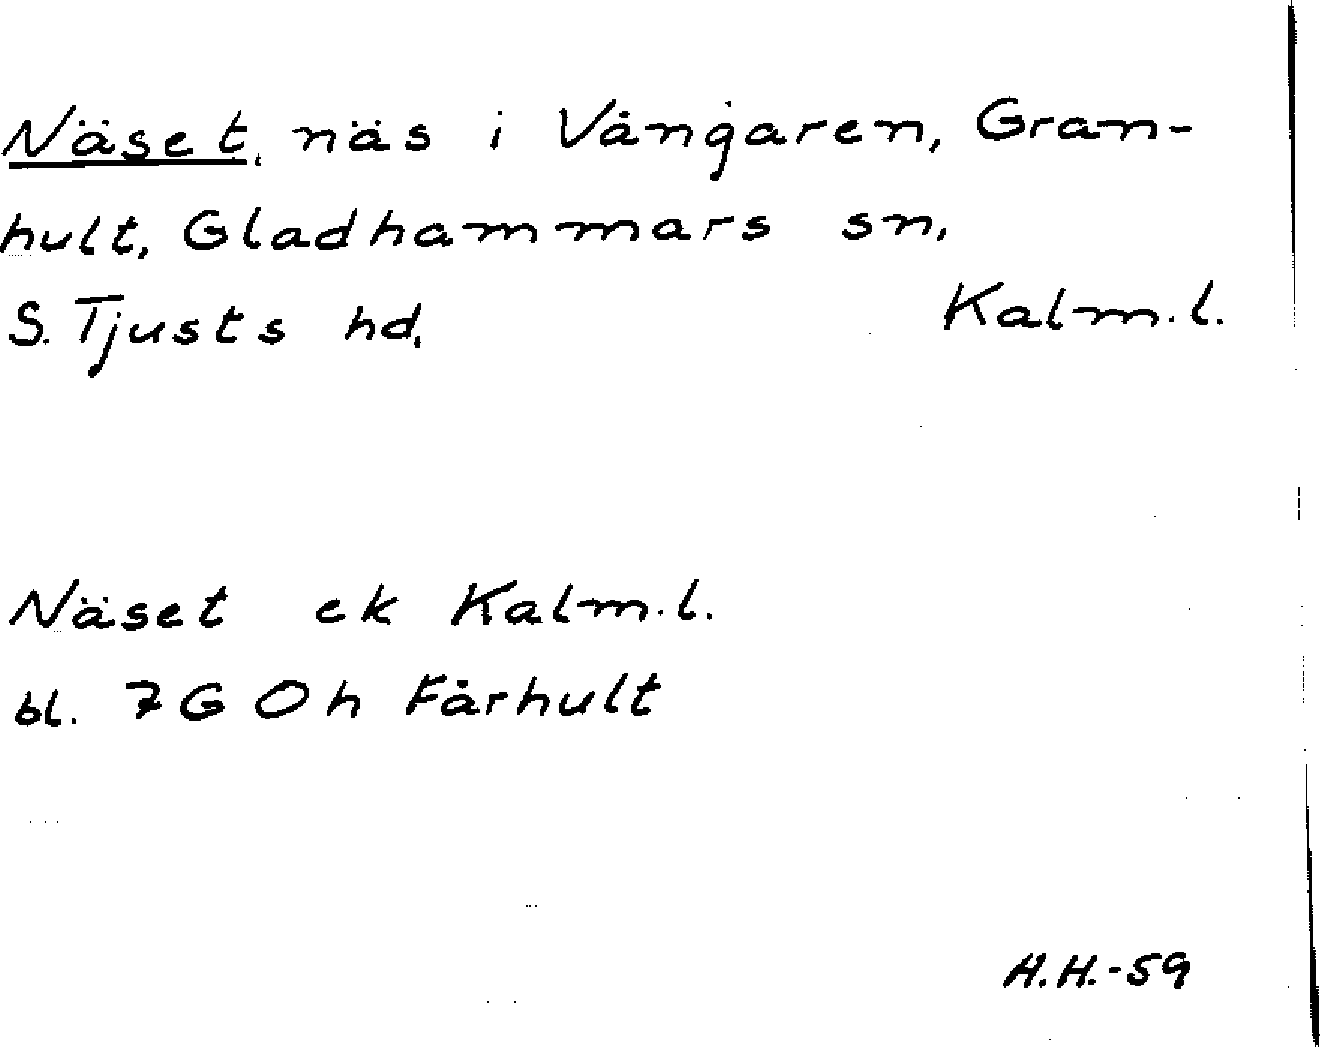 Näset, näs i Vångaren, Gran-
hult, Gladhammars sn,
S. Tjusts hd, Kalm. l.
Näset ek Kalm. l.
bl. 7G Oh Fårhult
A.H.-59